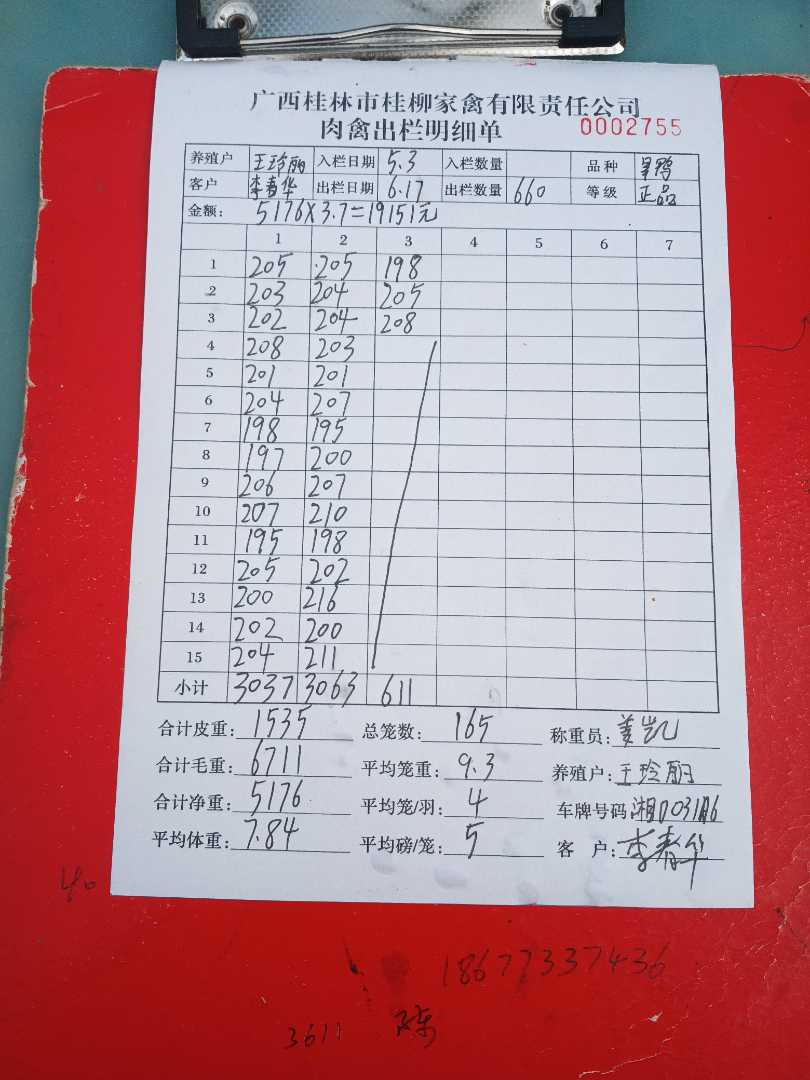 广西桂林市桂柳家禽有限责任公司
肉禽出栏明细单 0002755
养殖户 王玲丽 入栏日期 5.3 入栏数量 品种
客户 李春华 出栏日期 6.17 出栏数量 660 等级 正品
金额: 5176×3.7=19151元
1 2 3 4 5 6 7
1 205 205 198
2 203 204 205
3 202 204 208
4 208 203
5 201 201
6 204 207
7 198 195
8 197 200
9 206 207
10 207 210
11 195 198
12 205 202
13 200 216
14 202 200
15 204 211
小计 3037 3063 611
合计皮重: 1535 总笼数: 165 称重员: 姜凯
合计毛重: 6711 平均笼重: 9.3 养殖户: 王玲丽
合计净重: 5176 平均笼/羽: 4 车牌号码:
平均体重: 7.84 平均磅/笼: 5 客 户: 李春华
40
18677337436
3611